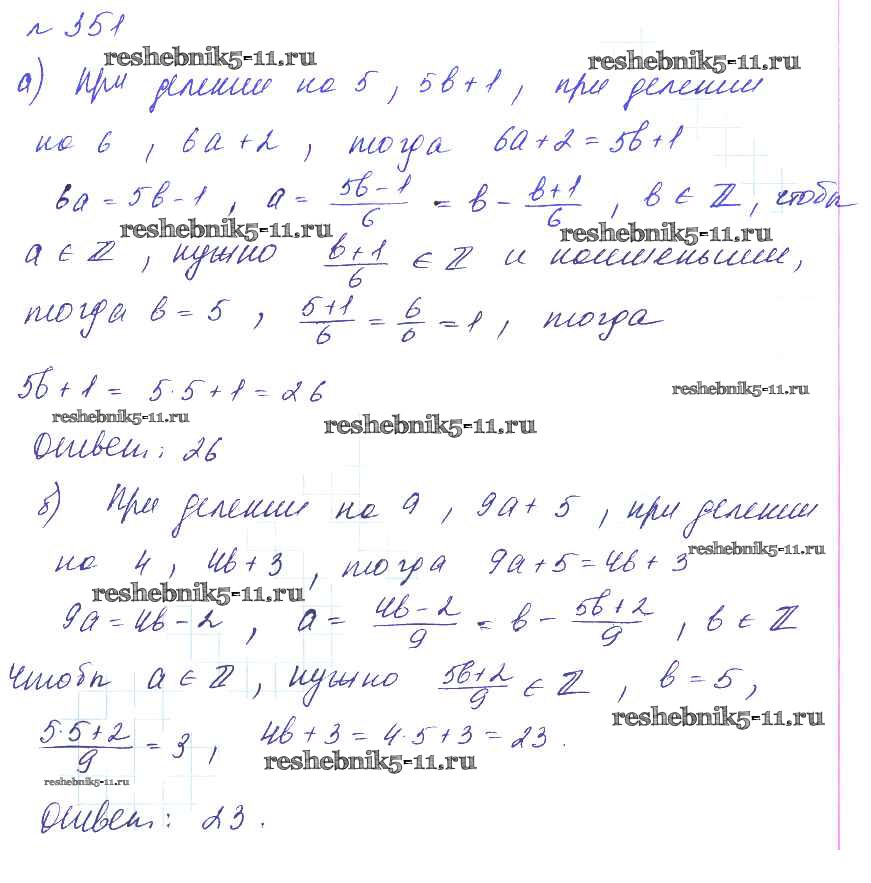 № 351
reshebnik5-11.ru reshebnik5-11.ru
а) При делении на 5, 5b+1, при делении
на 6, 6a+2, тогда 6a+2=5b+1
6a=5b-1, a= (5b-1)/6 = b - (b+1)/6, b ∈ ℤ, чтобы
reshebnik5-11.ru reshebnik5-11.ru
a ∈ ℤ, нужно (b+1)/6 ∈ ℤ и наименьшим,
тогда b=5, (5+1)/6 = 6/6 = 1, тогда
5b+1= 5·5+1=26
reshebnik5-11.ru
reshebnik5-11.ru reshebnik5-11.ru
Ответ: 26
б) При делении на 9, 9a+5, при делении
на 4, 4b+3, тогда 9a+5=4b+3
reshebnik5-11.ru
reshebnik5-11.ru
9a=4b-2, a= (4b-2)/9 = b - (5b+2)/9, b ∈ ℤ
Чтобы a ∈ ℤ, нужно (5b+2)/9 ∈ ℤ, b=5,
reshebnik5-11.ru
(5·5+2)/9 = 3, 4b+3=4·5+3=23.
reshebnik5-11.ru
reshebnik5-11.ru
Ответ: 23.